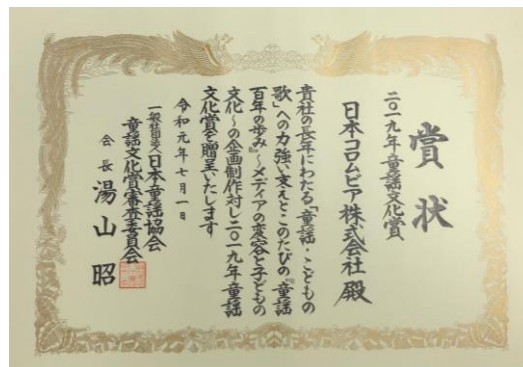 賞状
二〇一九年童謡文化賞
日本コロムビア株式会社殿
貴社の長年にわたる「童謡・こどもの
歌」への力強い支えとこのたびの『童謡
百年の歩み〜メディアの変容と子どもの
文化〜の企画制作対し二〇一九年童謡
文化賞を贈呈いたします
令和元年七月一日
一般社団法人日本童謡協会
童謡文化賞審査委員会
会長 湯山 昭